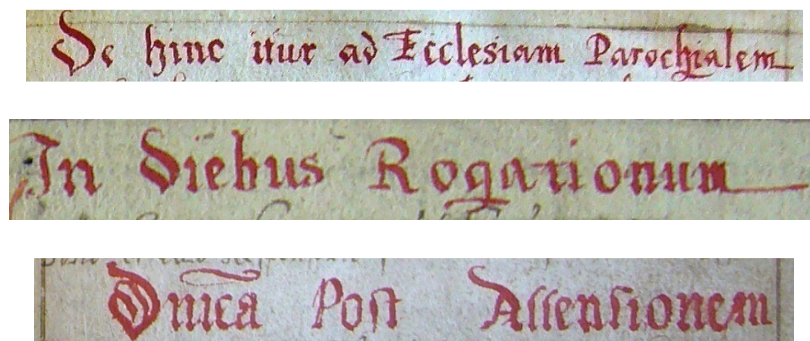 De hinc itur ad Ecclesiam Parochialem
In diebus Rogationum
Dnica Post Assensionem